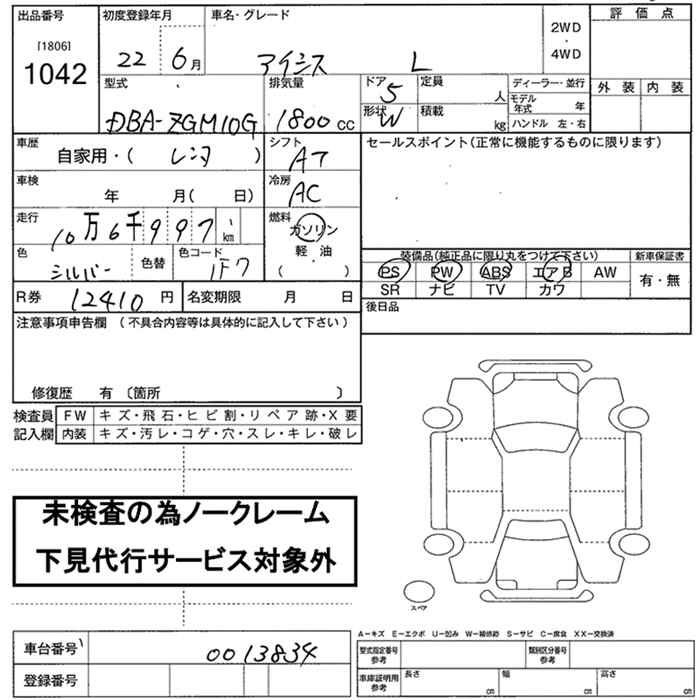 出品番号 初度登録年月 車名・グレード 評価点
[1806]
1042
22 6月 アイシス L
2WD
・
4WD
外装 内装
型式 排気量 ドア 5 定員 人 ディーラー・並行
DBA-ZGM10G 1800 cc 形状 W 積載 kg モデル年式 年
ハンドル 左・右
車歴 シフト セールスポイント(正常に機能するものに限ります)
自家用・( レンタ ) AT
車検 冷房
年 月( 日) AC
走行 燃料
10万6千997 km ガソリン
軽・油
( ・ )
色 色替 色コード
シルバー 1F7
装備品(純正品に限り丸をつけて下さい) 新車保証書
PS PW ABS エアB AW 有・無
SR ナビ TV カワ
R券 12410 円 名変期限 月 日 後日品
注意事項申告欄 (不具合内容等は具体的に記入して下さい)
修復歴 有 〔箇所 〕
検査員 FW キズ・飛石・ヒビ割・リペア跡・X要
記入欄 内装 キズ・汚レ・コゲ・穴・スレ・キレ・破レ
未検査の為ノークレーム
下見代行サービス対象外
スペア
A－キズ E－エクボ U－凹み W－補修跡 S－サビ C－腐食 XX－交換済
車台番号 0013834
型式指定番号 参考 類別区分番号 参考
登録番号
車庫証明用 参考 長さ cm 幅 cm 高さ cm